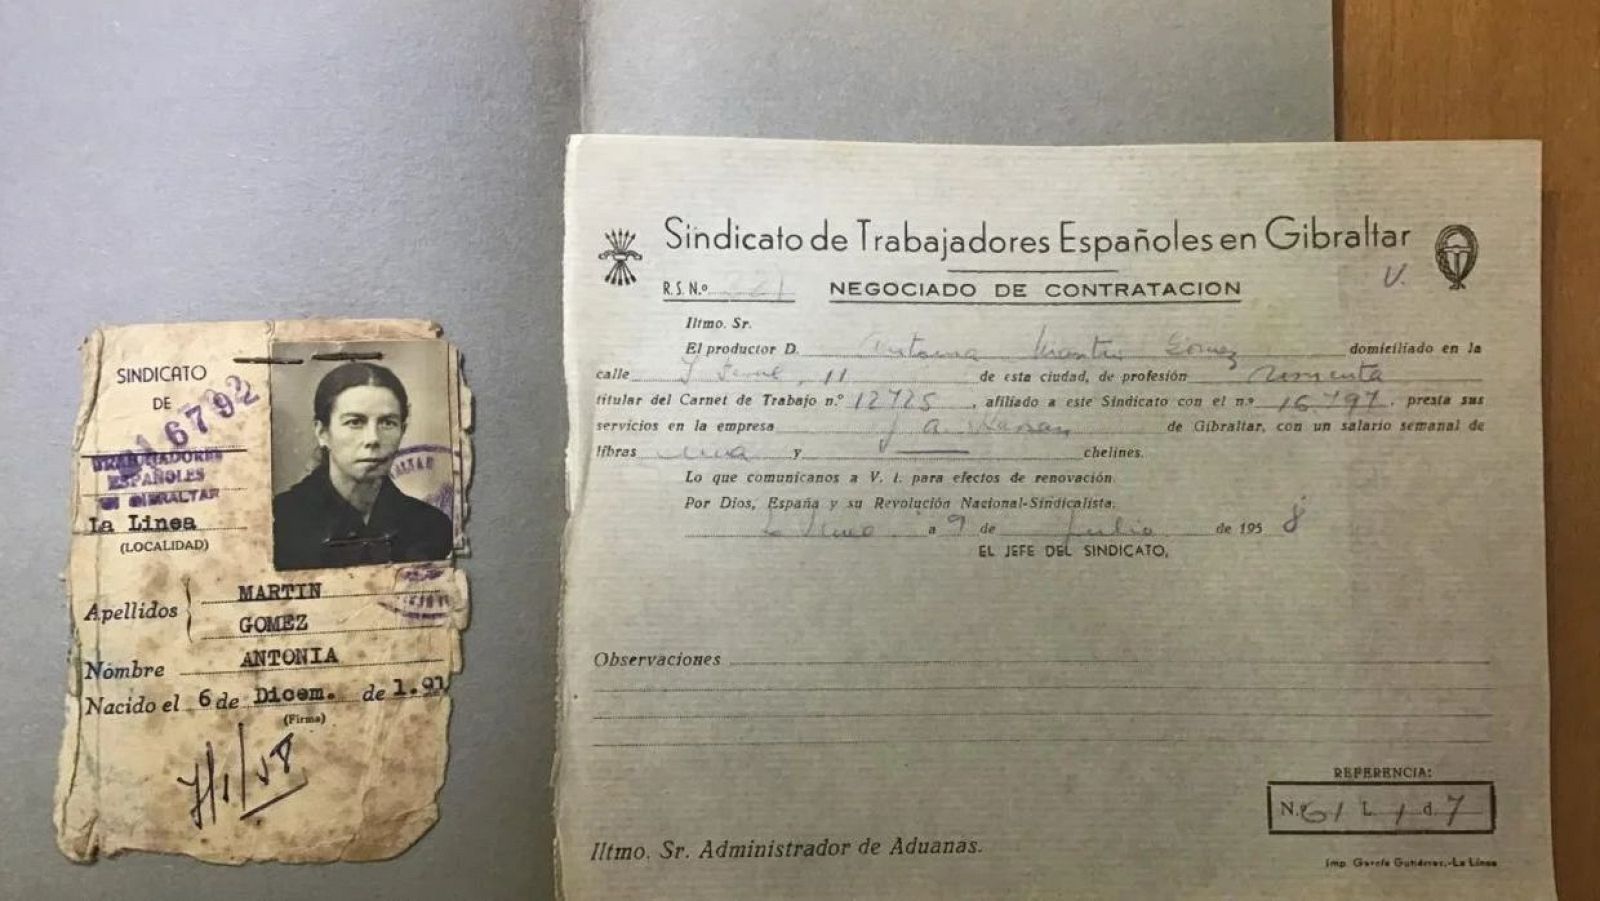 SINDICATO
DE
16792
TRABAJADORES
ESPAÑOLES
EN GIBRALTAR
La Linea
(LOCALIDAD)
Apellidos MARTIN
GOMEZ
Nombre ANTONIA
Nacido el 6 de Dicem. de 1.91
(Firma)
Sindicato de Trabajadores Españoles en Gibraltar
V.
R. S. N.º NEGOCIADO DE CONTRATACION
Iltmo. Sr.
El productor D. Antonia Martin Gomez domiciliado en la
calle 11 de esta ciudad, de profesión
titular del Carnet de Trabajo n.º 12725, afiliado a este Sindicato con el n.º 16.797, presta sus
servicios en la empresa de Gibraltar, con un salario semanal de
libras una y — chelines.
Lo que comunicamos a V. I. para efectos de renovación.
Por Dios, España y su Revolución Nacional-Sindicalista.
La Linea a 9 de Julio de 195 8
EL JEFE DEL SINDICATO,
Observaciones
REFERENCIA:
N. L d. 7
Iltmo. Sr. Administrador de Aduanas.
Imp. García Gutiérrez.-La Línea